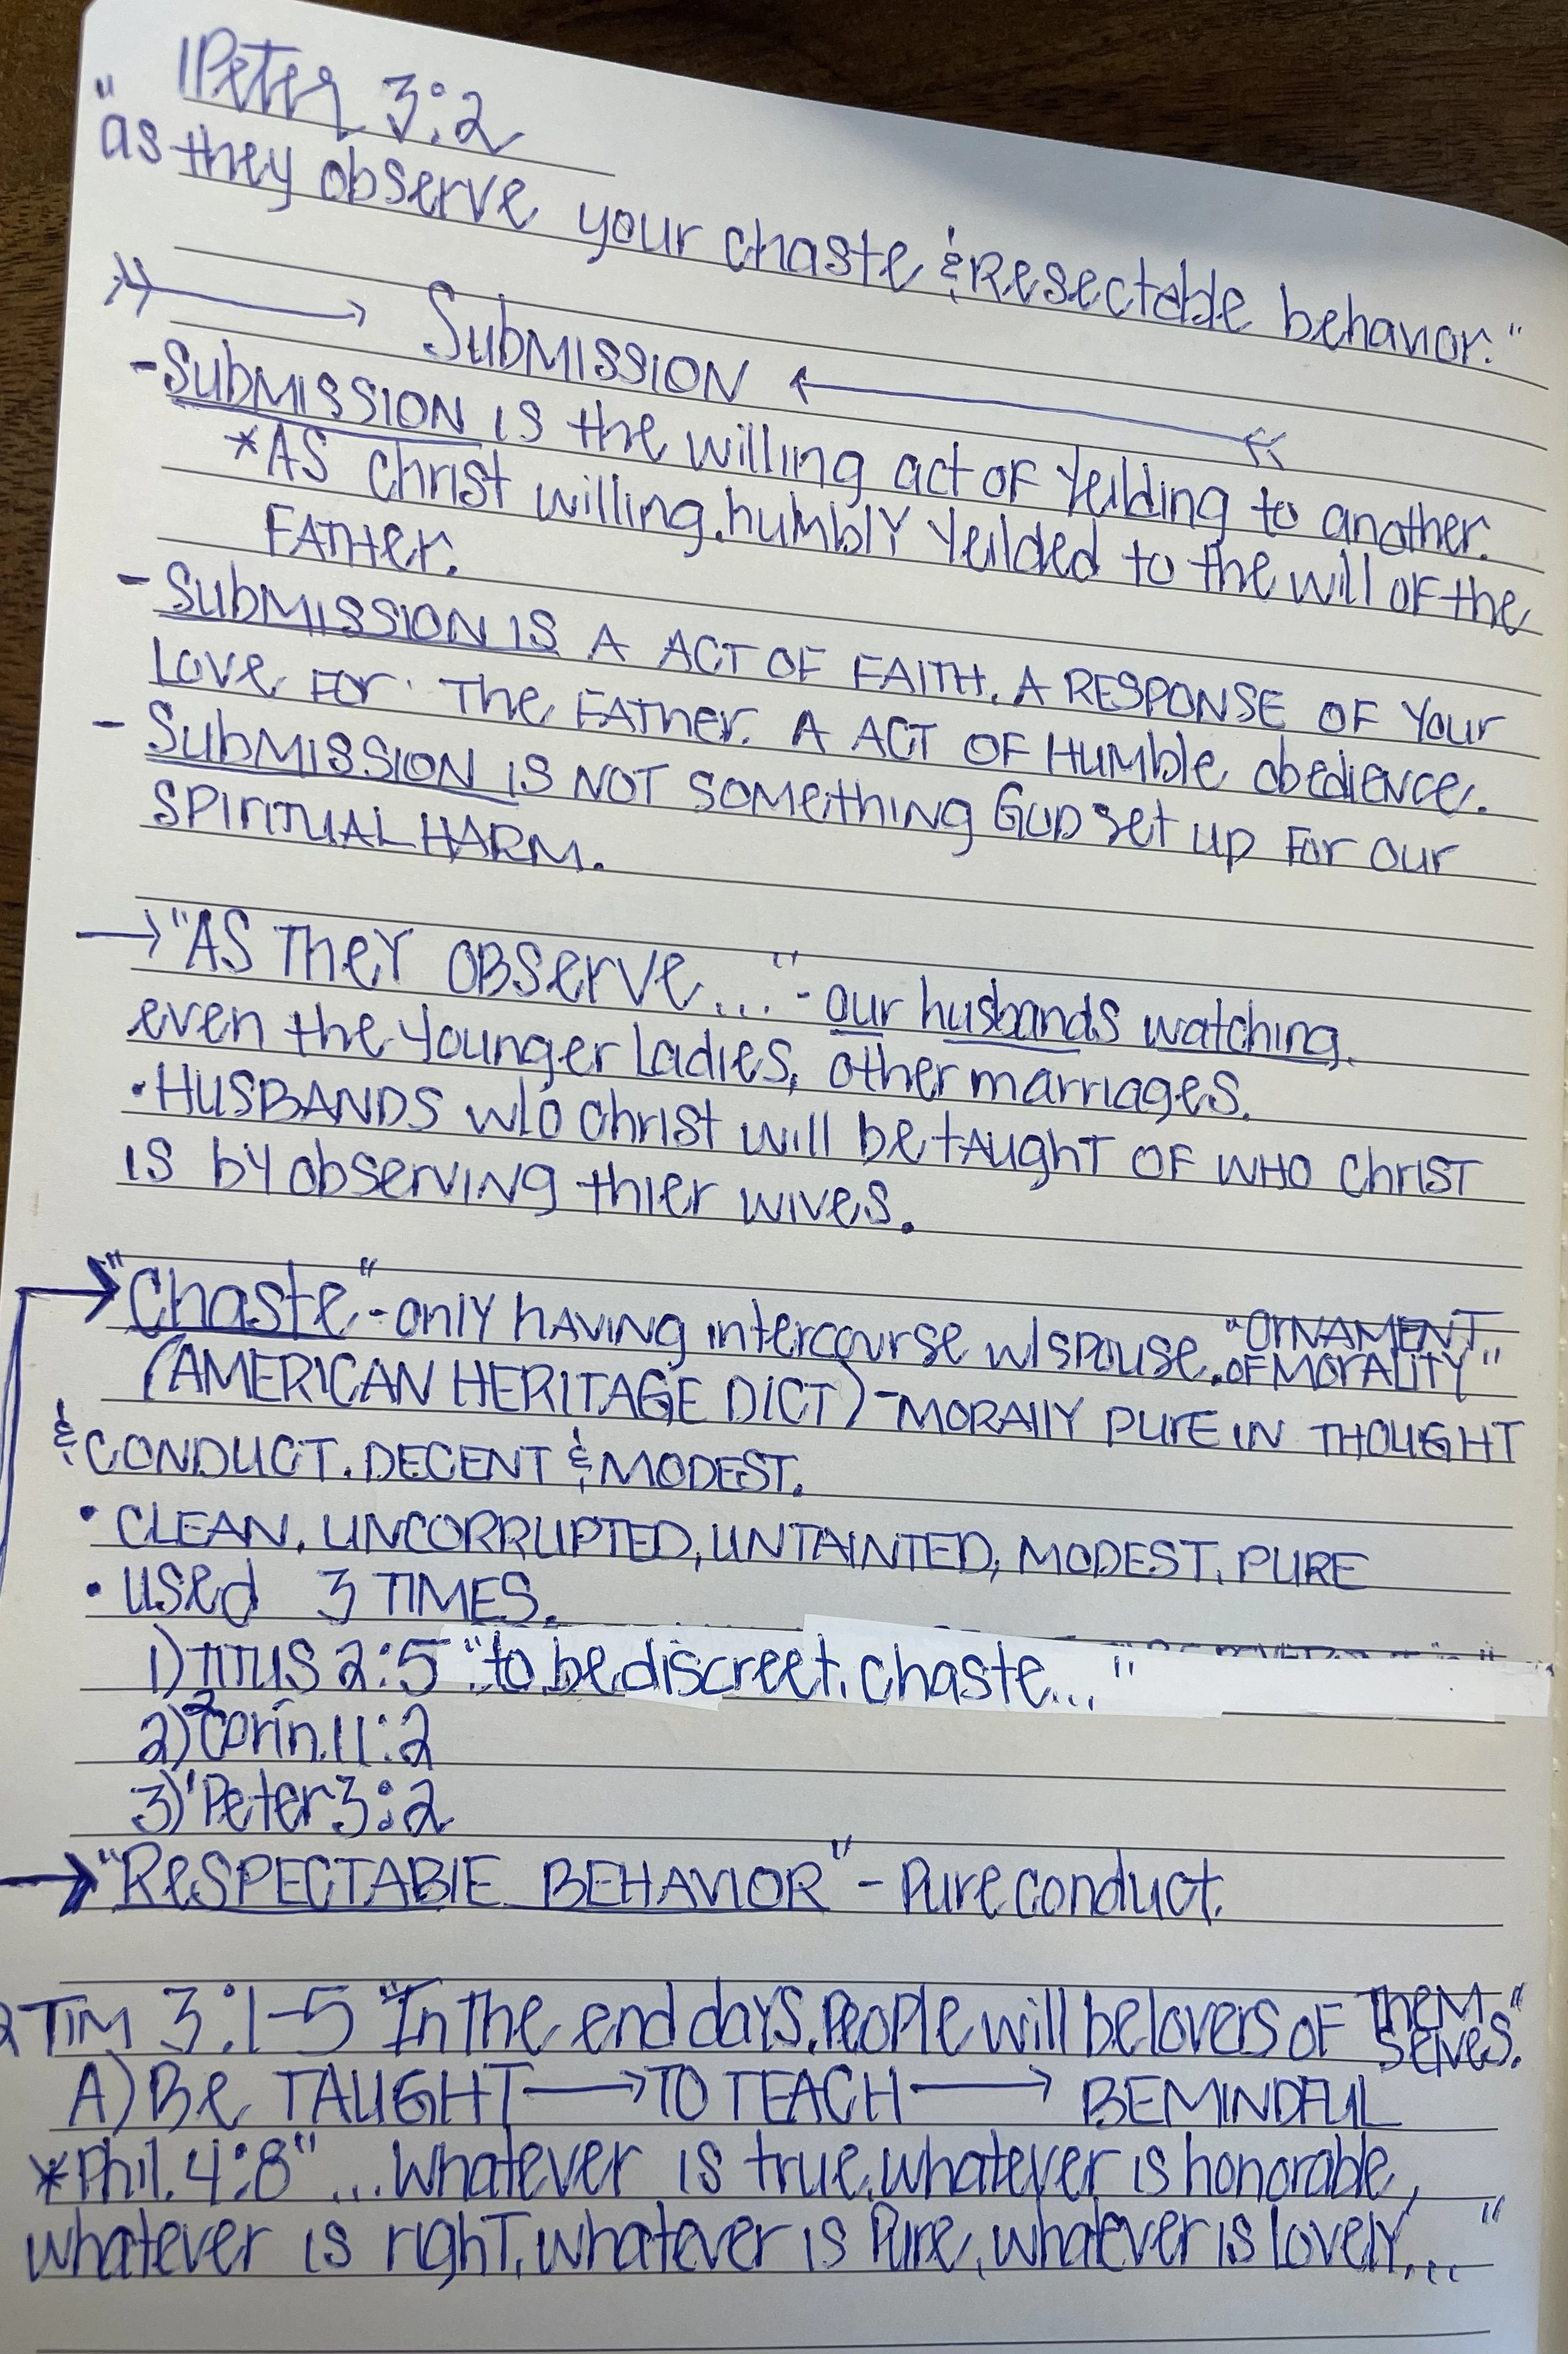 1Peter 3:2
"as they observe your chaste & Resectable behavior."
Submission
- Submission is the willing act of Yeilding to another.
*As Christ willing, humbly Yeilded to the will of the
Father.
- Submission is A ACT OF FAITH. A RESPONSE OF Your
Love For The Father. A ACT OF Humble obedience.
- Submission is NOT something God set up For our
SPIRITUAL HARM.
→ "AS They OBServe..." - our husbands watching.
even the Younger Ladies, other marriages.
• HUSBANDS w/o Christ will be tAught OF WHO Christ
is by observing thier wives.
→ "Chaste" - only having intercourse w/spouse. "ORNAMENT
OF MORALITY"
(AMERICAN HERITAGE DICT) - MORAlly PURE IN THOUGHT
& CONDUCT. DECENT & MODEST.
• CLEAN, UNCORRUPTED, UNTAINTED, MODEST, PURE
• used 3 TIMES.
1) TITUS 2:5 "to be discreet, chaste..."
2) 2Corin. 11:2
3) 1Peter 3:2
→ "ReSPECTABlE BEHAVIOR" - Pure conduct.
2 TIM 3:1-5 "In the end days, People will be lovers of Them
selves."
A) Be TAUGHT → TO TEACH → BE MINDFUL
*Phil. 4:8 "...Whatever is true, whatever is honorable,
whatever is right, whatever is Pure, whatever is lovely..."